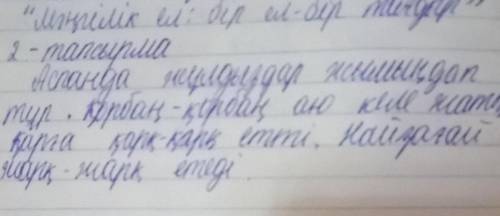 "Мәңгілік ел: бір ел-бір тағдыр"
2-тапсырма
Аспанда жұлдыздар жымыңдап
тұр. Қорбаң-қорбаң аю келе жаты
қарға қарқ-қарқ етті. Найзағай
жарқ-жарқ етеді.